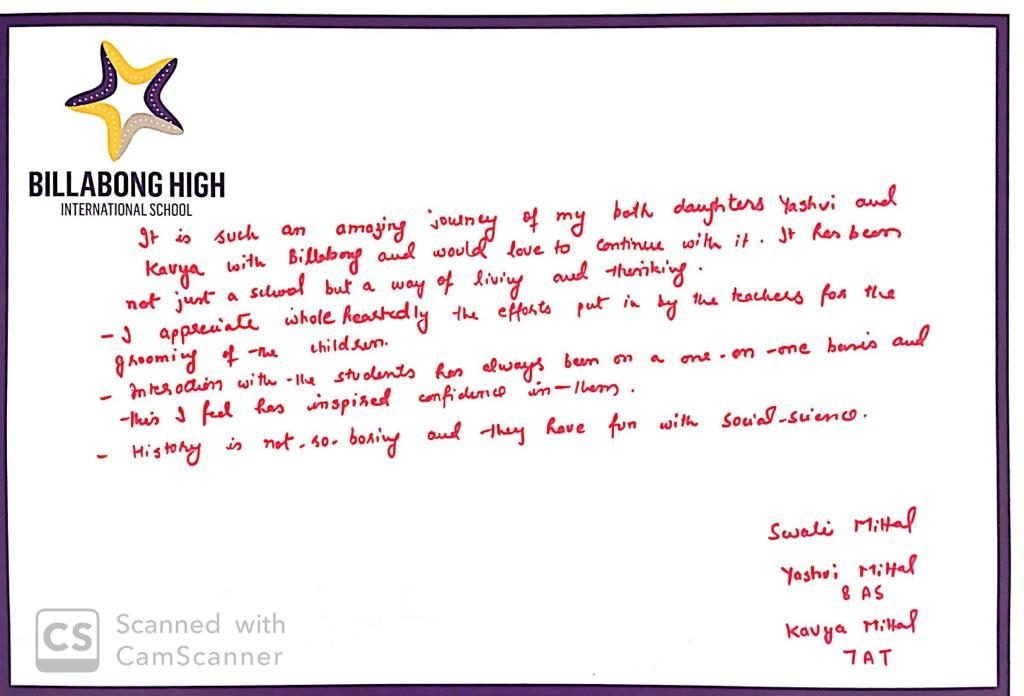 BILLABONG HIGH
INTERNATIONAL SCHOOL
It is such an amazing journey of my both daughters Yashvi and
Kavya with Billabong and would love to continue with it. It has been
not just a school but a way of living and thinking.
- I appreciate whole heartedly the efforts put in by the teachers for the
grooming of the children.
- Interaction with the students has always been on a one-on-one basis and
this I feel has inspired confidence in them.
- History is not-so-boring and they have fun with social-science.
Swati Mittal
Yashvi Mittal
8 AS
Kavya Mittal
7AT
CS Scanned with
CamScanner